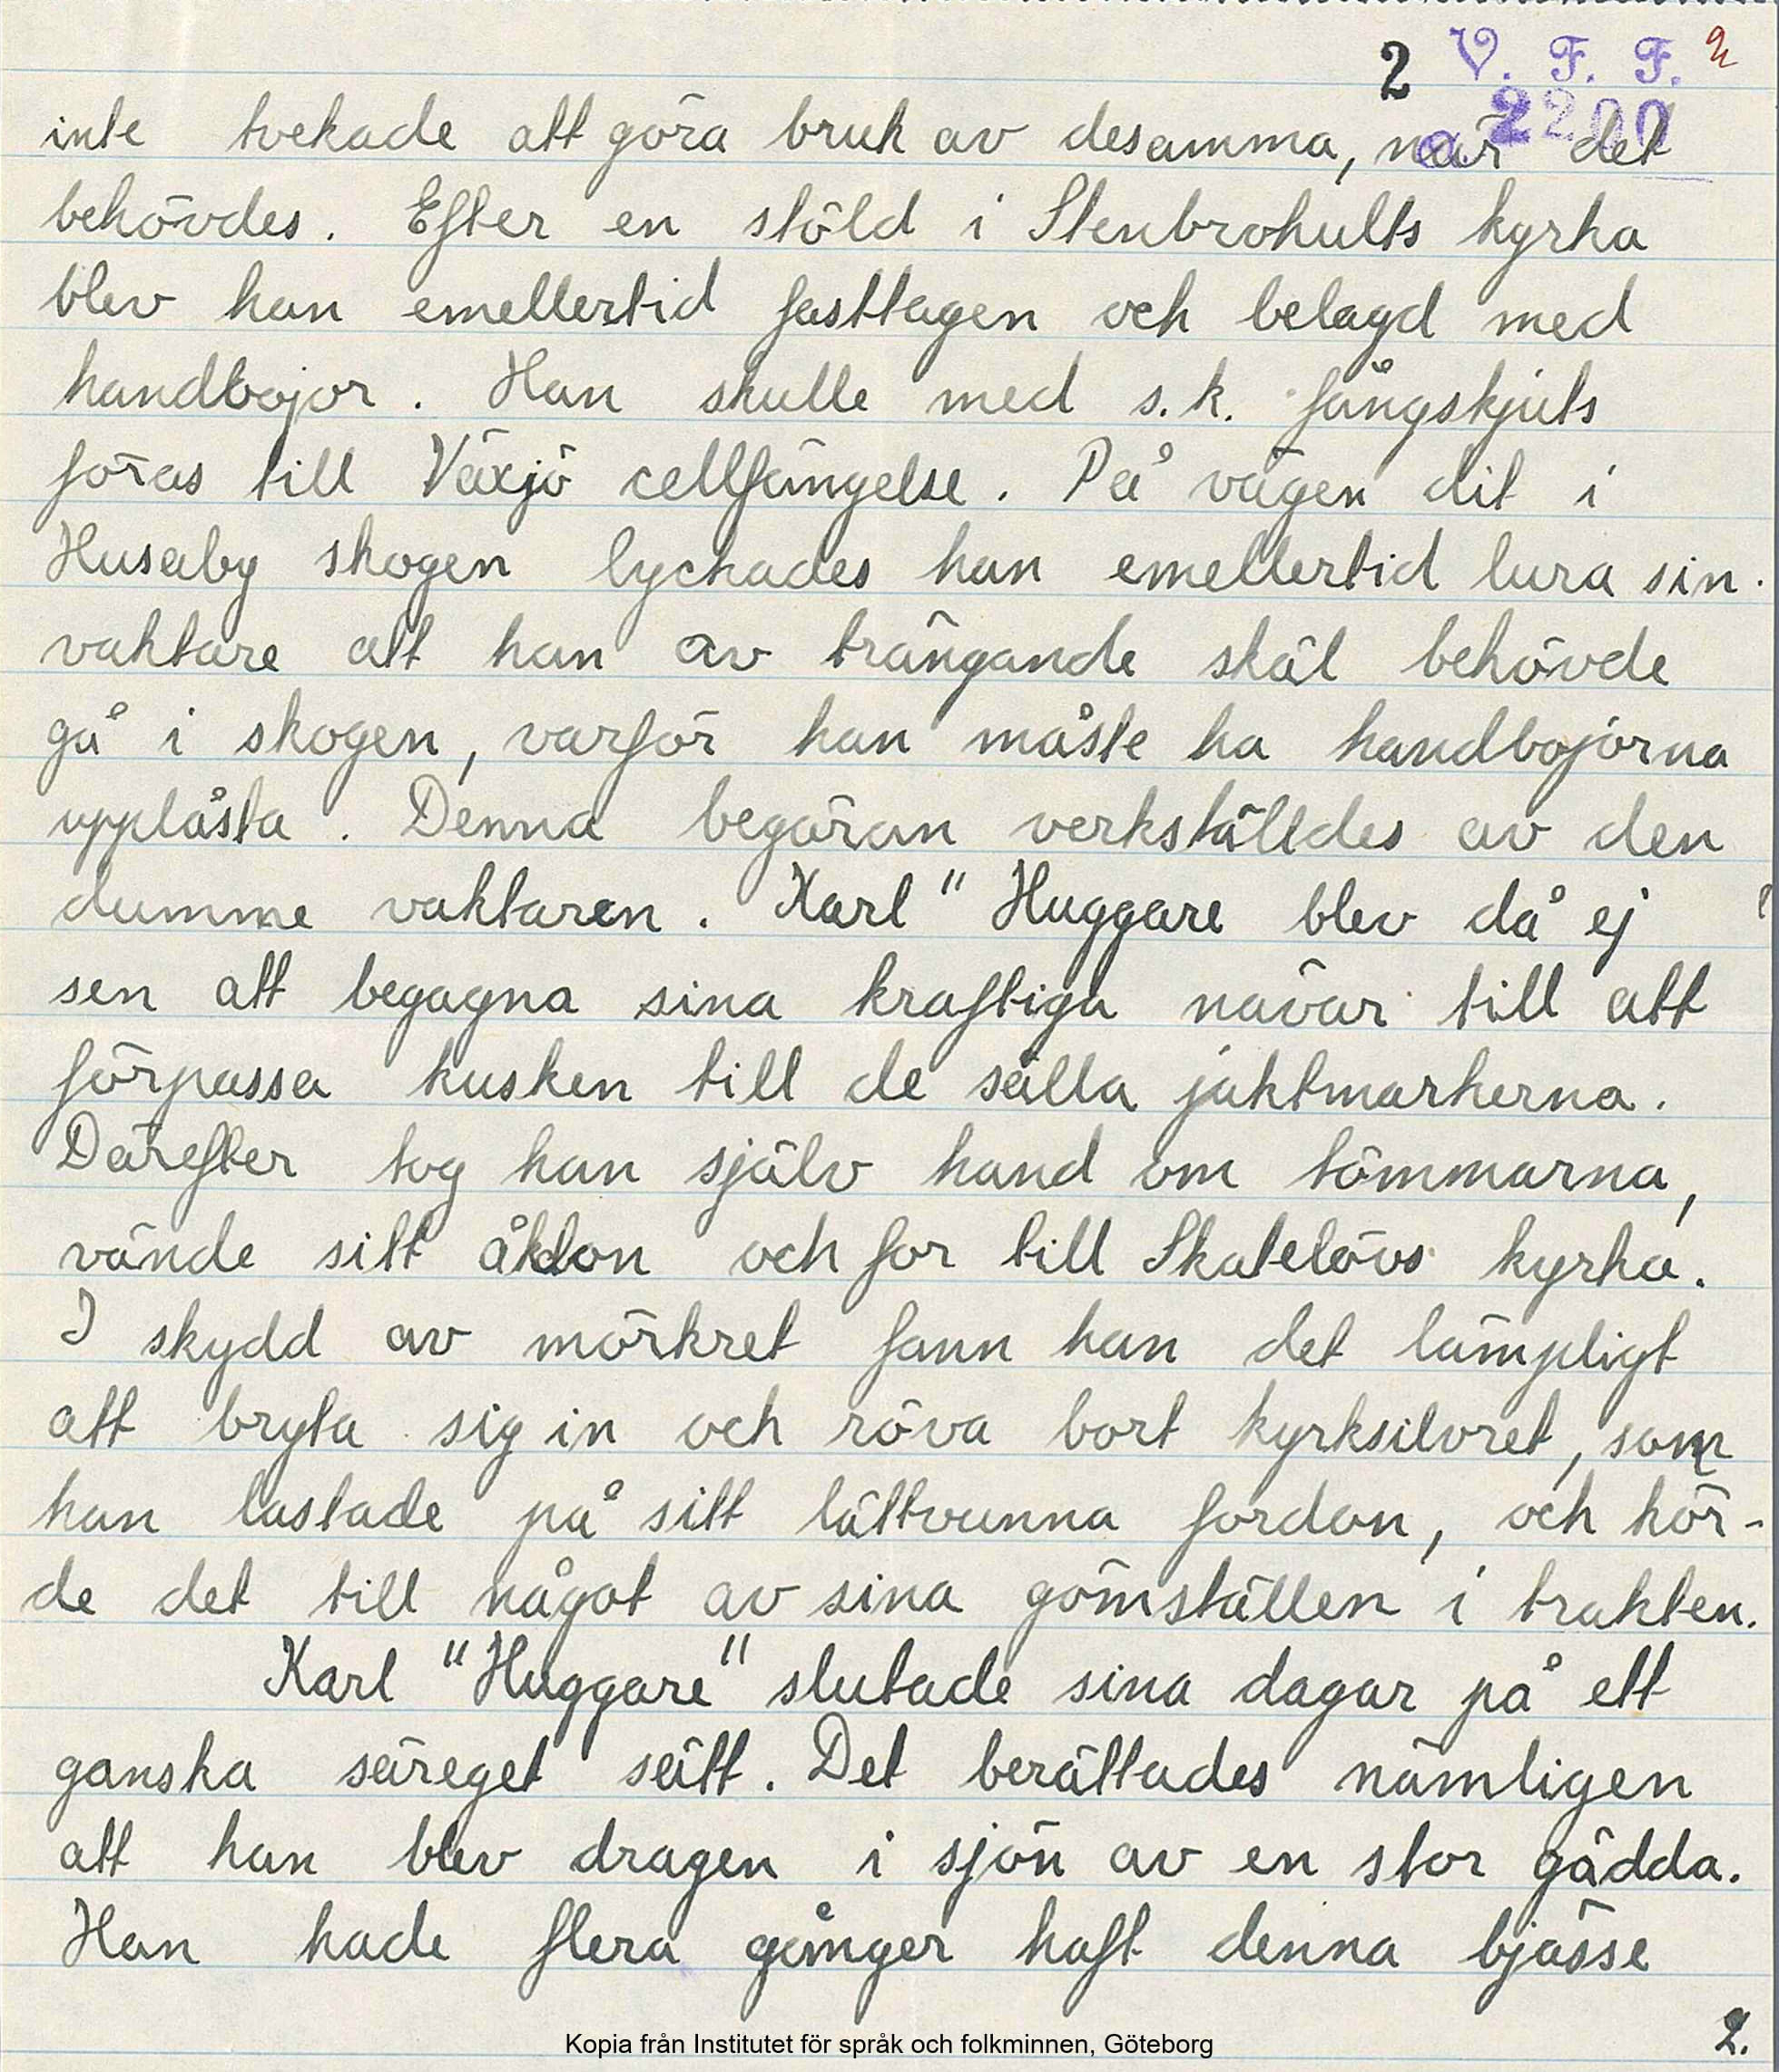 2 V. F. F. 2
2200
inte tvekade att göra bruk av desamma, när det
behövdes. Efter en stöld i Stenbrohults kyrka
blev han emellertid fasttagen och belagd med
handbojor. Han skulle med s.k. fångskjuts
föras till Växjö cellfängelse. På vägen dit i
Husaby skogen lyckades han emellertid lura sin
vaktare att han av trängande skäl behövde
gå i skogen, varför han måste ha handbojorna
upplåsta. Denna begäran verkställdes av den
dumme vaktaren. Karl " Huggare blev då ej
sen att begagna sina kraftiga nävar till att
förpassa kusken till de sälla jaktmarkerna.
Därefter tog han själv hand om tömmarna,
vände sitt åkdon och for till Skatelövs kyrka.
I skydd av mörkret fann han det lämpligt
att bryta sig in och röva bort kyrksilvret, som
han lastade på sitt lättvunna fordon, och kör-
de det till något av sina gömställen i trakten.
Karl "Huggare" slutade sina dagar på ett
ganska säreget sätt. Det berättades nämligen
att han blev dragen i sjön av en stor gädda.
Han hade flera gånger haft denna bjässe
2.
Kopia från Institutet för språk och folkminnen, Göteborg